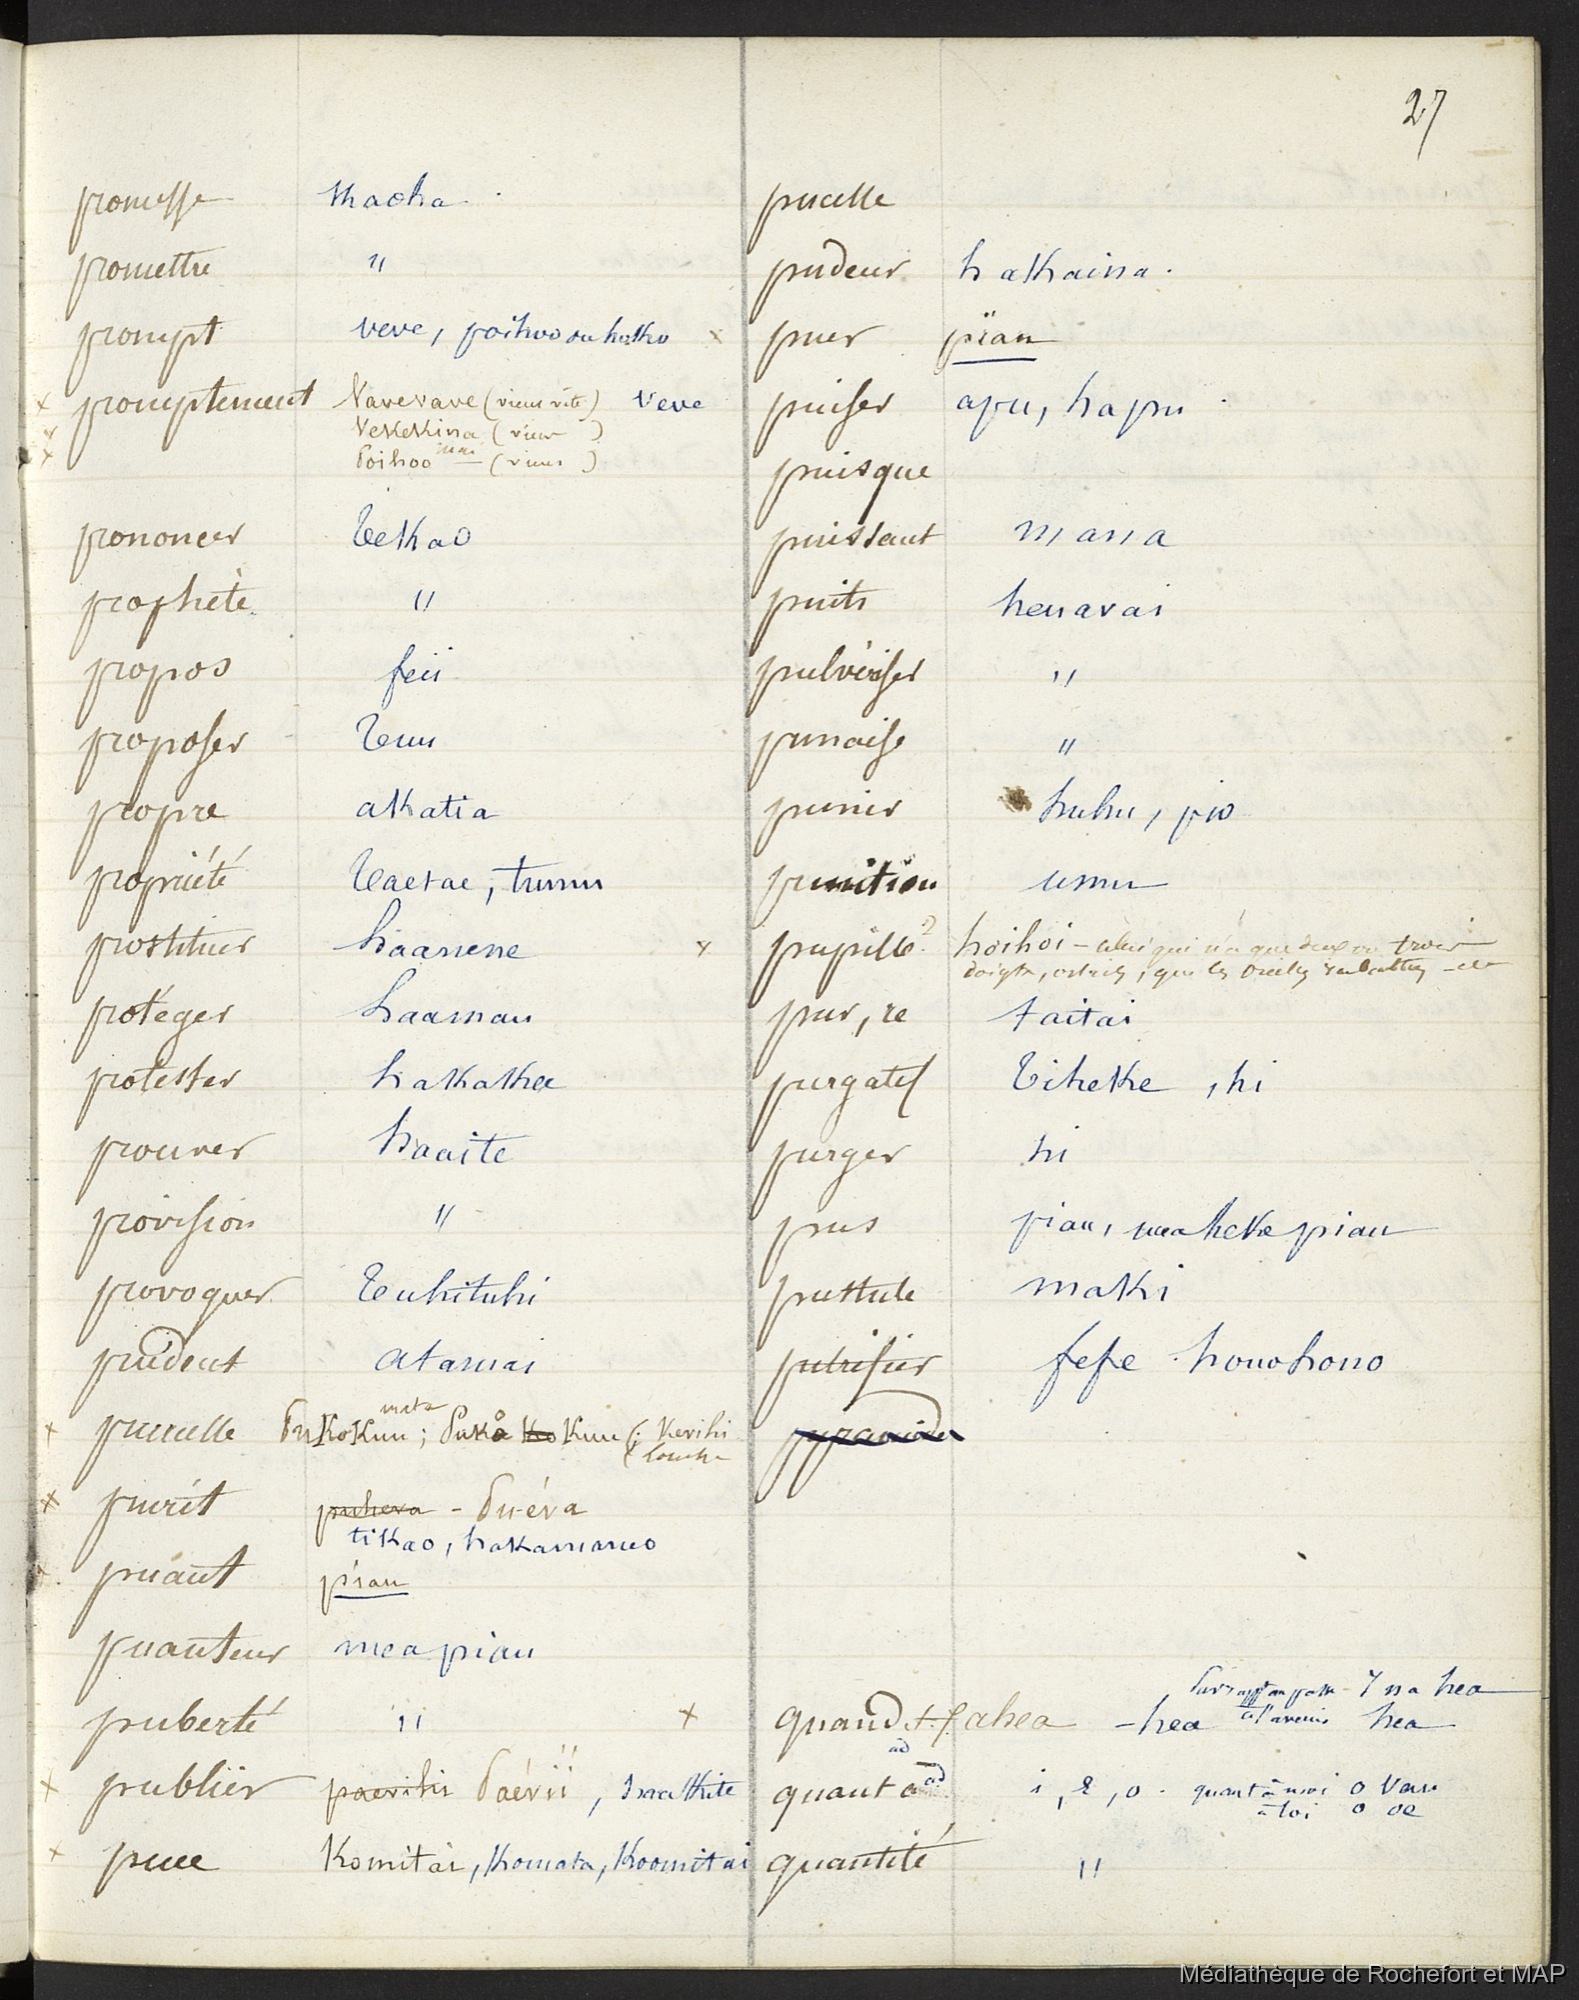 27
promesse kaoha
promettre "
prompt veve, poihoo
x promptement Vavevave (viens vite) veve
x Vekekina (viens )
x Poihoo mai — (viens )
prononcer Tekao
prophète "
propos feii
proposer Tuu
propre akatia
propriété Taetae, tumu
prostituer haanene
protéger haamau
protester hakakee
prouver haaite
provision "
provoquer Tuhituhi
prudent atamai
x prunelle mata
x prurit puheva - Puéva
tikao, hakamaneo
x puant piau
puanteur mea piau
puberté "
x publier paevihi Paévii, haakite
x puce Komitai, komata, koomitai
pucelle
pudeur hakaina
x puer piau
puiser apu, hapu
puisque
puissant mana
puits henavai
pulvériser "
punaise "
punir huhu, pio
punition umu
x pupille? hoihoi - celui qui n'a que deux ou trois
doigts, orteils, que les oreilles rabattues - etc
pur, re taitai
purgatif Tiheke, hi
purger hi
pus piau, meaheke piau
pustule maki
putrifier fefe honohono
pyramide
x quand ahea - hea na hea
à l'avenir hea
quant à i, e, o. quant à moi o vau
à toi o oe
quantité "
Médiathèque de Rochefort et MAP